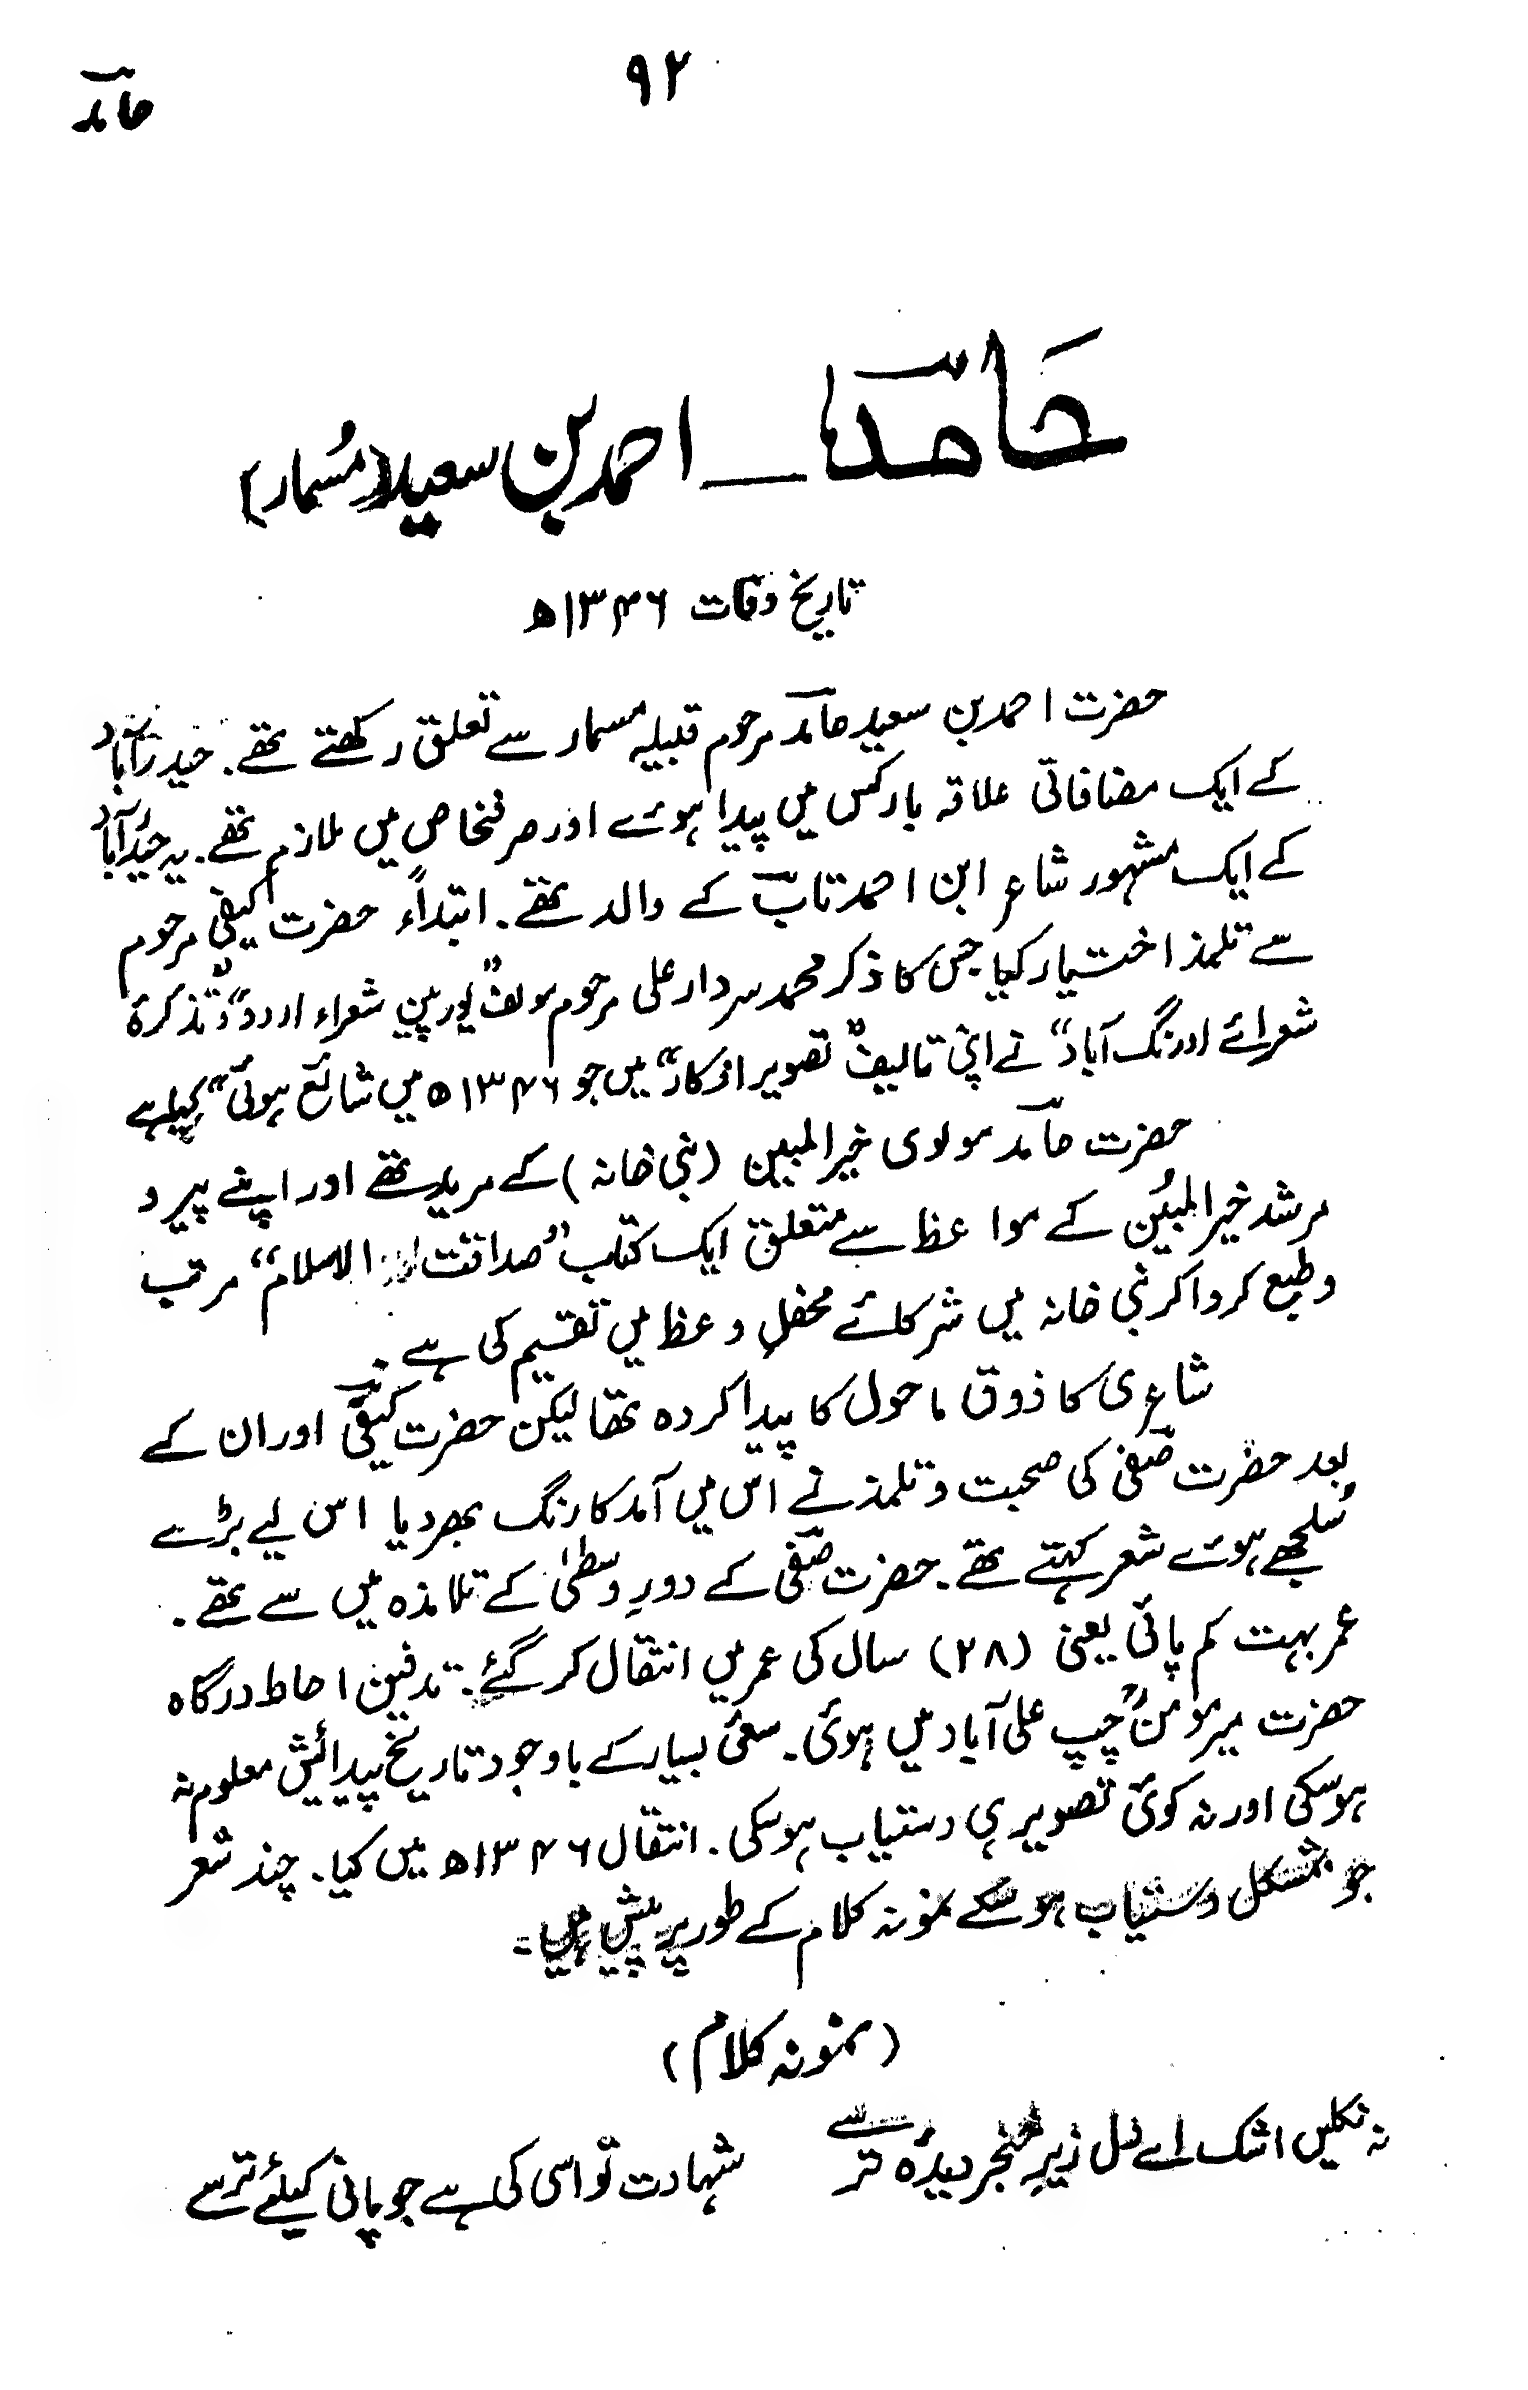 ۹۲
حامد
حامد ـ احمد بن سعید (مُسمار)
تاریخ وفات ۱۳۴۶ھ
حضرت احمد بن سعید حامد مرحوم قبیلہ مسمار سے تعلق رکھتے تھے۔ حیدرآباد
کے ایک مضافاتی علاقہ بارکس میں پیدا ہوئے اور صرفخاص میں ملازم تھے۔ یہ حیدرآباد
کے ایک مشہور شاعر ابن احمد تاب کے والد تھے۔ ابتداً حضرت کیفی مرحوم
سے تلمذ اختیار کیا جس کا ذکر محمد سردار علی مرحوم مولف "یورپین شعراء اردو" و "تذکرۂ
شعرائے اورنگ آباد" نے اپنی تالیف "تصویر افکار" میں جو ۱۳۴۶ھ میں شائع ہوئی" کیا ہے
حضرت حامد مولوی خیرالمبین (نبی خانہ) کے مرید تھے اور اپنے پیر و
مرشد خیرالمبین کے مواعظ سے متعلق ایک کتاب "صداقت الاسلام" مرتب
و طبع کرواکر نبی خانہ میں شرکائے محفلِ وعظ میں تقسیم کی ہے۔
شاعری کا ذوق ماحول کا پیدا کردہ تھا لیکن حضرت کیفی اور ان کے
بعد حضرت صفی کی صحبت و تلمذ نے اس میں آمد کا رنگ بھر دیا اس لیے بڑے
سُلجھے ہوئے شعر کہتے تھے۔ حضرت صفی کے دورِ وسطیٰ کے تلامذہ میں سے تھے۔
عمر بہت کم پائی یعنی (۲۸) سال کی عمر میں انتقال کر گئے۔ تدفین احاطہ درگاہ
حضرت میر مومنؒ چپ علی آباد میں ہوئی۔ سعئ بسیار کے باوجود تاریخ پیدائیش معلوم نہ
ہوسکی اور نہ کوئی تصویر ہی دستیاب ہوسکی۔ انتقال ۱۳۴۶ھ میں کیا۔ چند شعر
جو بمشکل دستیاب ہوسکے نمونہ کلام کے طور پر پیش ہیں۔
(نمونہ کلام)
نہ نکلیں اشک اے دل زیرِ خنجر دیدۂ تر سے شہادت تو اسی کی ہے جو پانی کیلئے ترسے